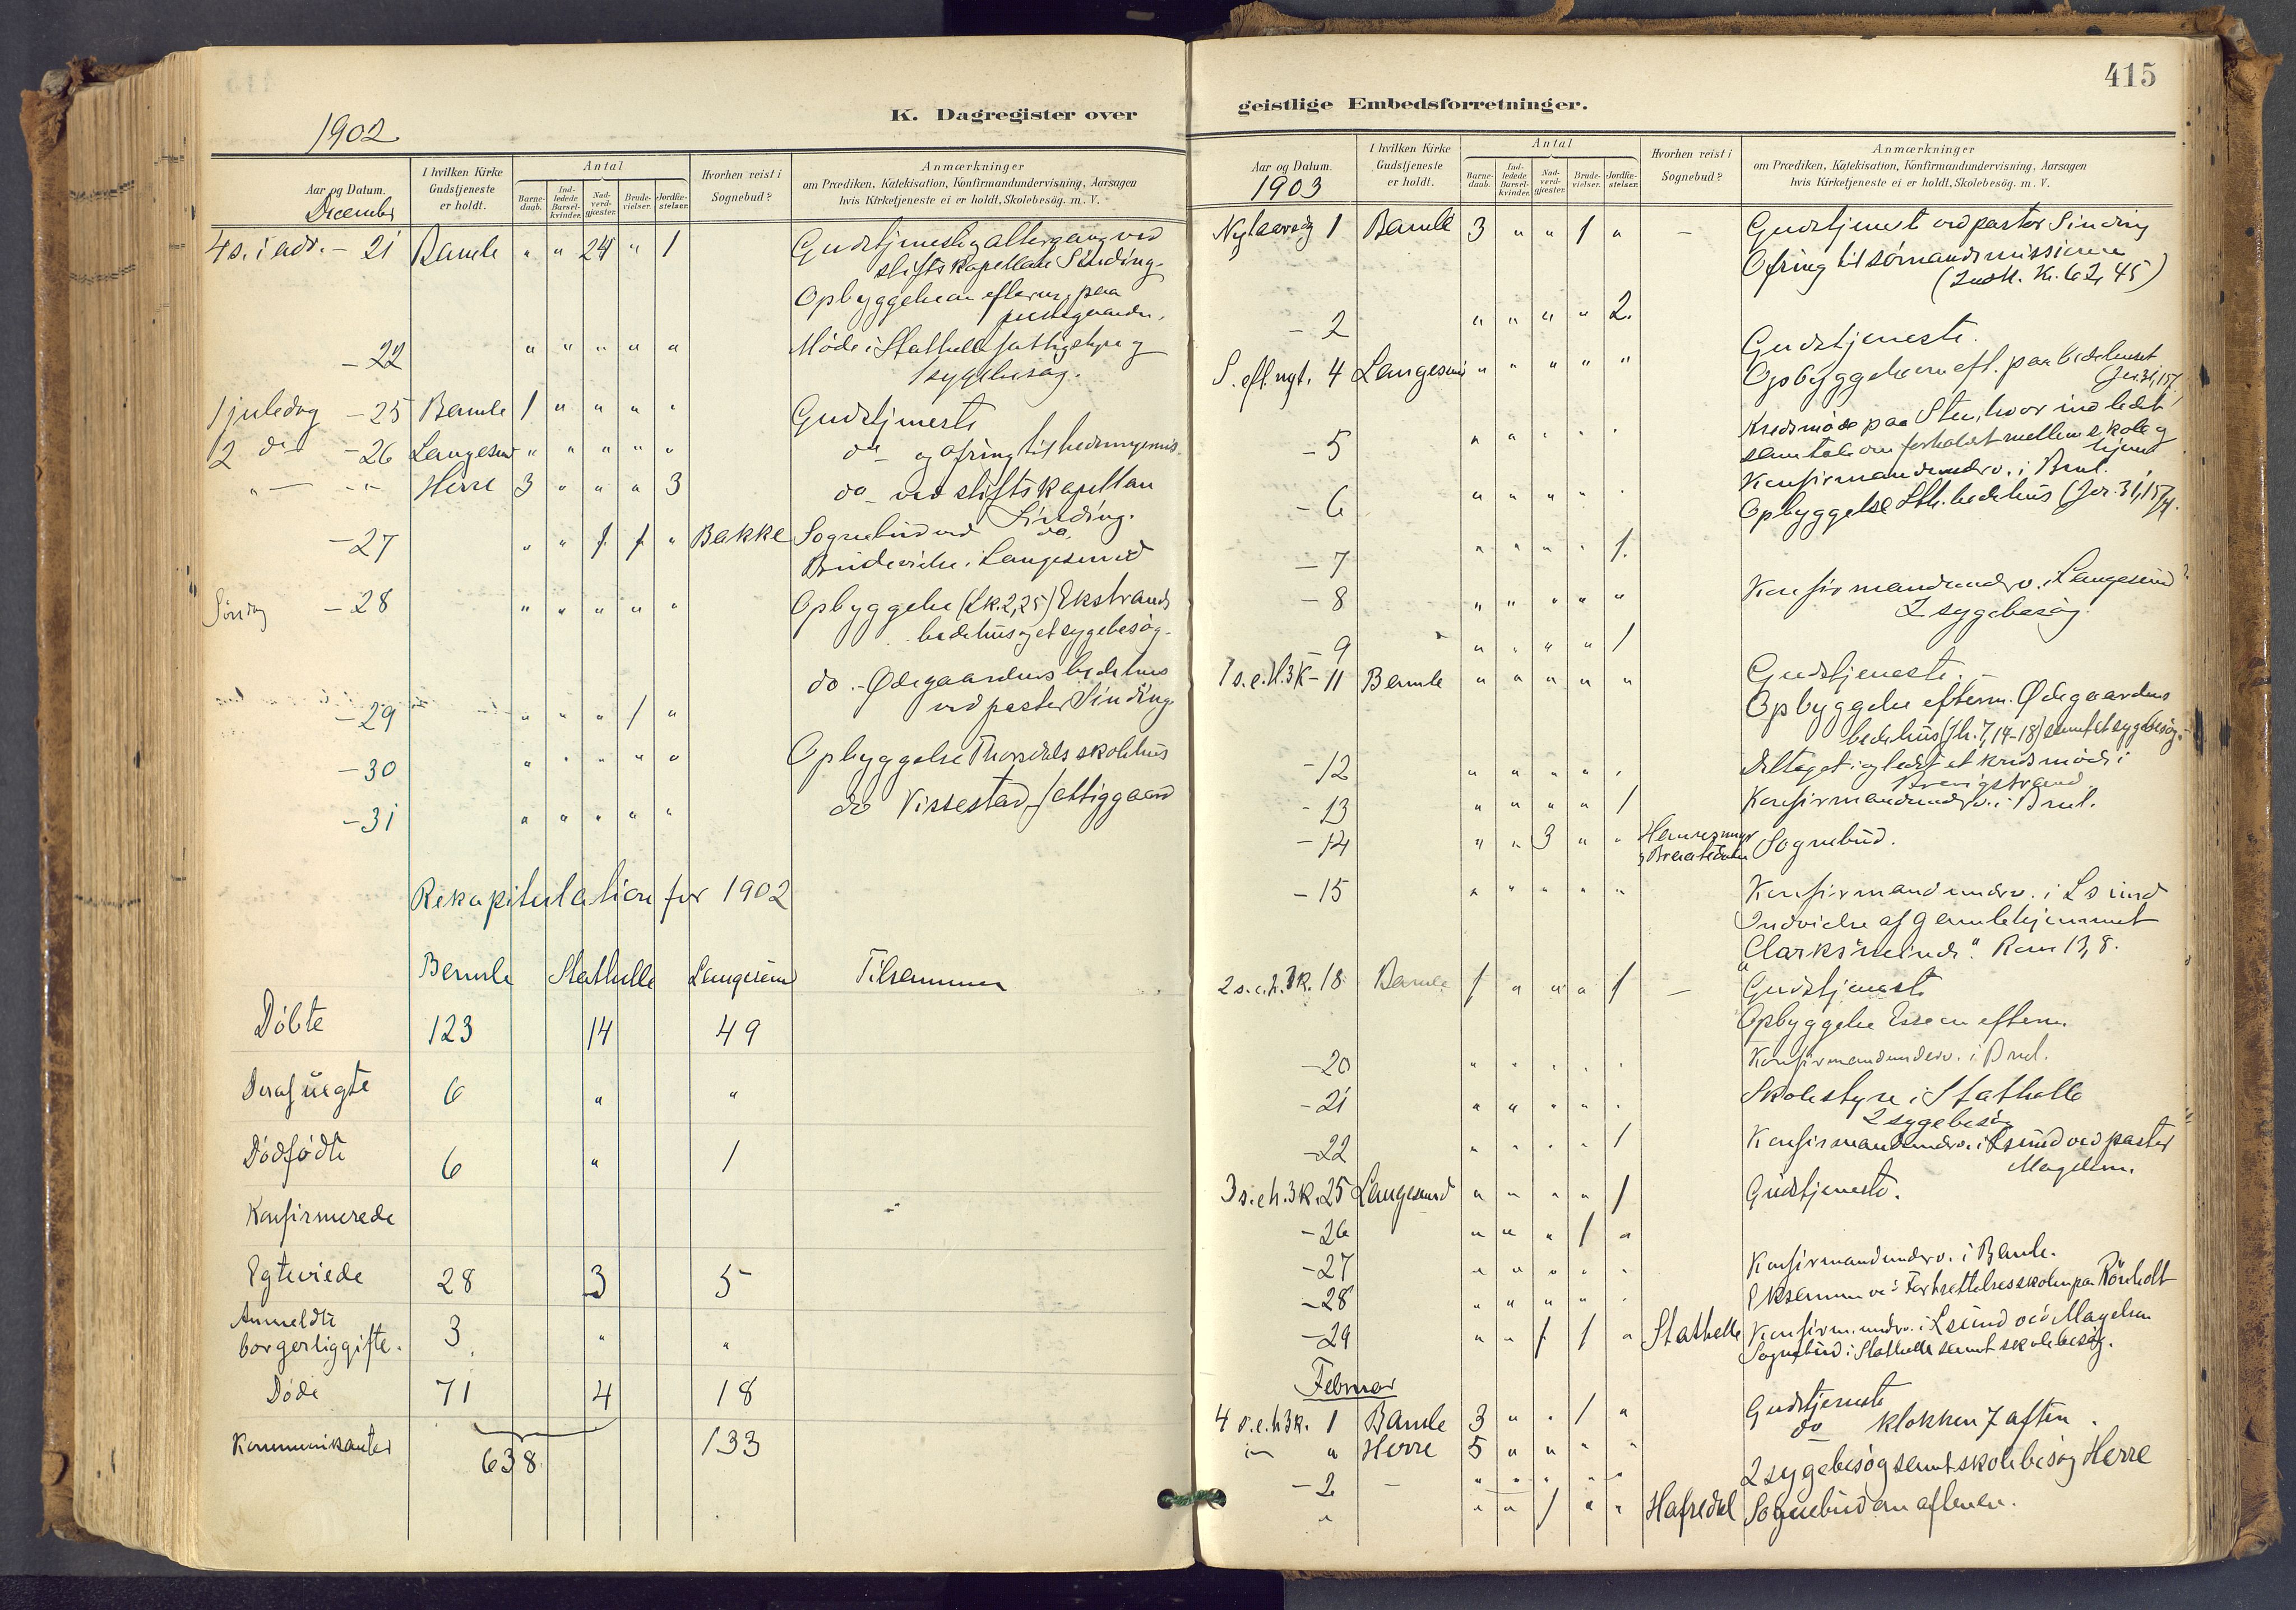 415
K. Dagregister over
geistlige Embedsforretninger.
1902
Aar og Datum.
December
I hvilken Kirke
Gudstjeneste
er holdt.
Antal
Barne-
daab.
Ind-
ledede
Barsel-
kvinder.
Nad-
verd-
gjæster.
Brude-
vielser.
Jordfæ-
stelser.
Hvorhen reist i
Sognebud?
Anmærkninger
om Prædiken, Katekisation, Konfirmandundervisning, Aarsagen
hvis Kirketjeneste ei er holdt, Skolebesøg. m. V.
4 s. i adv. - 21 Bamle " " 24 " 1 Gudstjeneste og altergang ved
stiftskapellan Sinding.
Opbyggelse om efterm. paa
prestegaarden.
- 22 " " " " " Møde i Stathelle fattigstyre og
1 sygebesøg.
1 juledag - 25 Bamle 1 " " " " Gudstjeneste
2 do - 26 Langesund " " " " " do - og ofring til hedningemis.
" - - " - Herre 3 " " " 3 do - ved stiftskapellan
Sinding.
- 27 " " 1 1 " Bakke Sognebud ved do.
Brudevielse i Langesund
Søndag - 28 " " " " " Opbyggelse (Lk. 2, 25) Ekstrands
bedehus og et sygebesøg.
do - Ødegaardens bedehus
ved pastor Sinding
- 29 " " " 1 "
- 30 " " " " " Opbyggelse Thorsdals skolehus
- 31 " " " " " do Vissestad fattiggaard
Rekapitulation for 1902
Bamle Stathelle Langesund Tilsammen
Døbte 123 14 49
Deraf uegte 6 " "
Dødfødte 6 " 1
Konfirmerede
Egteviede 28 3 5
Anmeldte
borgerliggifte. 3 " "
Døde 71 4 18
Kommunikanter 638 133
Aar og Datum.
1903
I hvilken Kirke
Gudstjeneste
er holdt.
Antal
Barne-
daab.
Ind-
ledede
Barsel-
kvinder.
Nad-
verd-
gjæster.
Brude-
vielser.
Jordfæ-
stelser.
Hvorhen reist i
Sognebud?
Anmærkninger
om Prædiken, Katekisation, Konfirmandundervisning, Aarsagen
hvis Kirketjeneste ei er holdt, Skolebesøg. m. V.
Nytaarsdg 1 Bamle 3 " " 1 " - Gudstjenest ved pastor Sinding
Ofring til sømandsmissionen
(Indk. Kr. 62, 45)
- 2 " " " " 2.
S. eft. nyt. 4 Langesund " " " " " Gudstjeneste.
Opbyggelse om eft. paa bedehuset
(Jer. 31, 15)
- 5 " " " " " Kredsmøde paa Sten, hvor indledet
samtale om forholdet mellem skole og
hjem
- 6 " " " " " Konfirmandundrv. i Bml.
Opbyggelse Sth. bedehus (Jer. 31, 15 f).
- 7 " " " " 1.
- 8 " " " " " Konfirmandundrv. i Langesund
2 sygebesøg.
- 9 " " " " 1
1 s. e. H.3K - 11 Bamle " " " " " Gudstjeneste. -
Opbyggelse efterm. Ødegaardens
bedehus (Jh. 7, 14-18) samt et sygebesøg.
- 12 " " " " " Deltaget i og ledet et kredsmøde i
Brevigstrand
- 13 " " " " 1 Konfirmandundrv. i Bml.
- 14 " " 3 " " Sognebud.
- 15 " " " " " Konfirmandundrv. i Lsund
Indvielse af gamlehjemmet
"Clarks minde". Rom 13, 8.
2 s. e. h. 3k. 18 Bamle 1 " " " 1 - Gudstjeneste
Opbyggelse Essem efterm.
- 20 " " " " " Konfirmandundrv. i Bml.
- 21 " " " " " Skolestyre i Stathelle
2 sygebesøg
- 22 " " " " 1 Konfirmandundrv. i Lsund ved pastor
Magelsen.
3 s. e h. 3k. 25 Langesund " " " " 1 Gudstjeneste.
- 26 " " " 1 "
- 27 " " " " " Konfirmandundrv. i Bamle.
- 28 " " " " " Eksamen ve: Fortsettelsesskolen paa Rönholt
- 29 " " 1 1 " Stathelle Konfirm. undrv. i Lsund ved Magelsen
Sognebud i Stathelle samt skolebesøg.
Februar
4 s. e. h 3k. 1 Bamle 3 " " 1 " Gudstjeneste
" - " Herre 5 " " " " do klokken 7 aften.
- 2 - " " " " " 2 sygebesøg samt skolebesøg Herre
" " " 1 " " Hafredal Sognebud om aftenen.